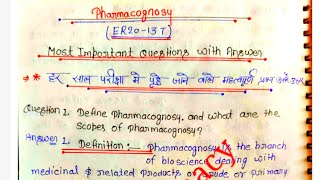 Pharmacognosy
(ER20-13T)
Most Important Questions with Answer
→ * हर साल परीक्षा मे पूछे जाने वाले महत्वपूर्ण प्रश्न उत्तर
Question 1. Define Pharmacognosy, and what are the
scopes of pharmacognosy?
Answer 1. Definition :— Pharmacognosy is the branch
of bioscience dealing with
medicinal & related products of crude or primary